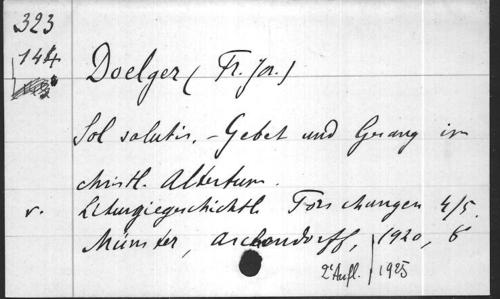 323
144
Doelger (Fr. Jos.)
Sol salutis. - Gebet und Gesang im
christl. Altertum.
v. Liturgiegeschichtl. Forschungen 4/5.
Münster, Aschendorff, 1920, 8°
2e Aufl. 1925